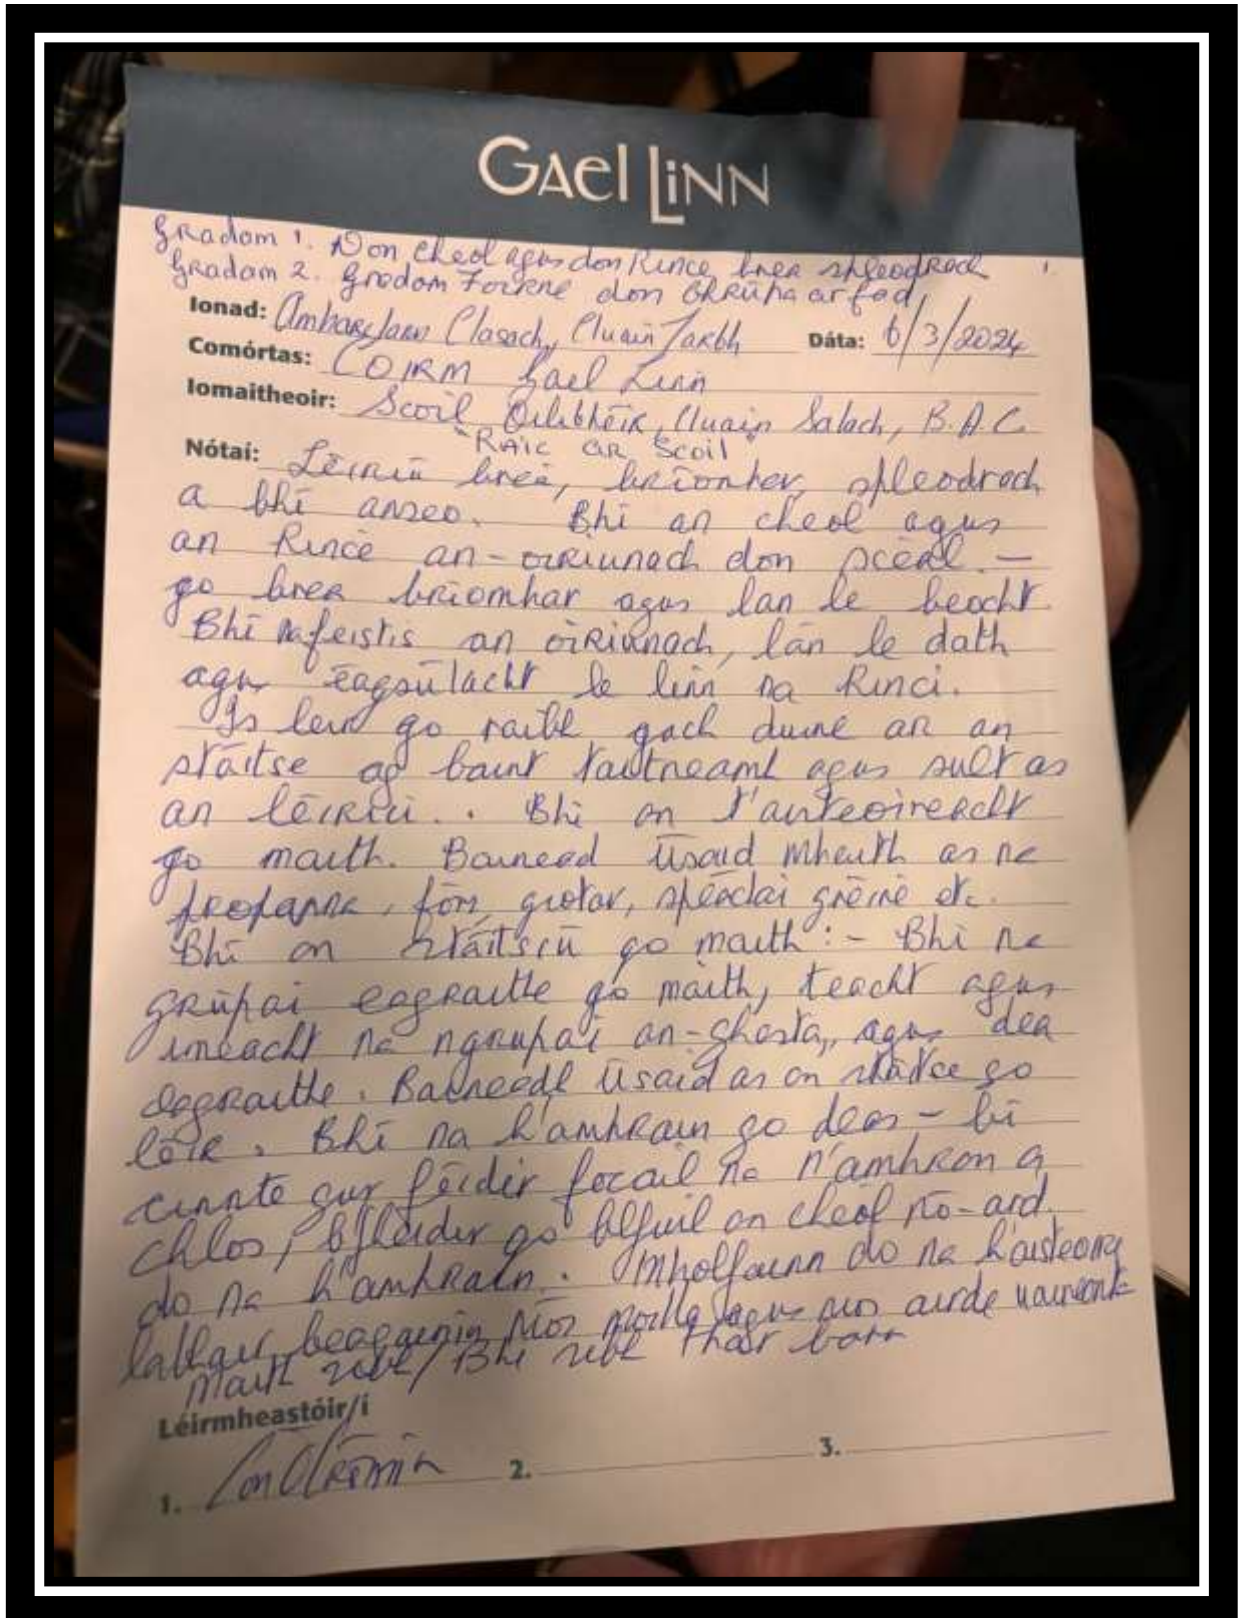 GAEL LINN
Gradam 1. Don Cheol agus don Rince brea spleodrach
Gradam 2. Gradam Foirne don Ghrúpa ar fad
Ionad: Amharclann Clasach, Cluain Tarbh Dáta: 6/3/2024
Comórtas: COIRM Gael Linn
Iomaitheoir: Scoil Oilibhéir, Cluain Salach, B.A.C.
"RAIC AR Scoil"
Nótaí: Léiriú brea, bríomhar, spleodrach
a bhí anseo. Bhí an cheol agus
an Rince an-oiriunach don scéal. -
go brea bríomhar agus lan le beocht
Bhí na feistis an oiriunach, lán le dath
agus éagsúlacht le linn na Rinci.
Is leir go raibh gach duine ar an
stáitse ag baint taitneamh agus sult as
an léiriú. . Bhí an t'aisteoireacht
go maith. Bainead úsaid mheith as na
propanna, fón, giotar, spéaclai gréine etc.
Bhí an stáitsiú go maith :- Bhí na
grúpai eagraithe go maith, teacht agus
imeacht na ngrupaí an-ghasta, agus dea
eagraithe. Baineadh úsaid as an stáitse go
léir. Bhí na h'amhrain go deas - bí
cinnte gur féidir focail na n'amhran a
chlos, b'fheidir go bhfuil an cheol ró-ard
do na h'amhrain. Mholfainn do na h'aisteoirí
labhair beagainín níos moille agus nios airde uaireanta
Maith sibh / Bhí sibh thar barr
Léirmheastóir/í
1. 2. 3.